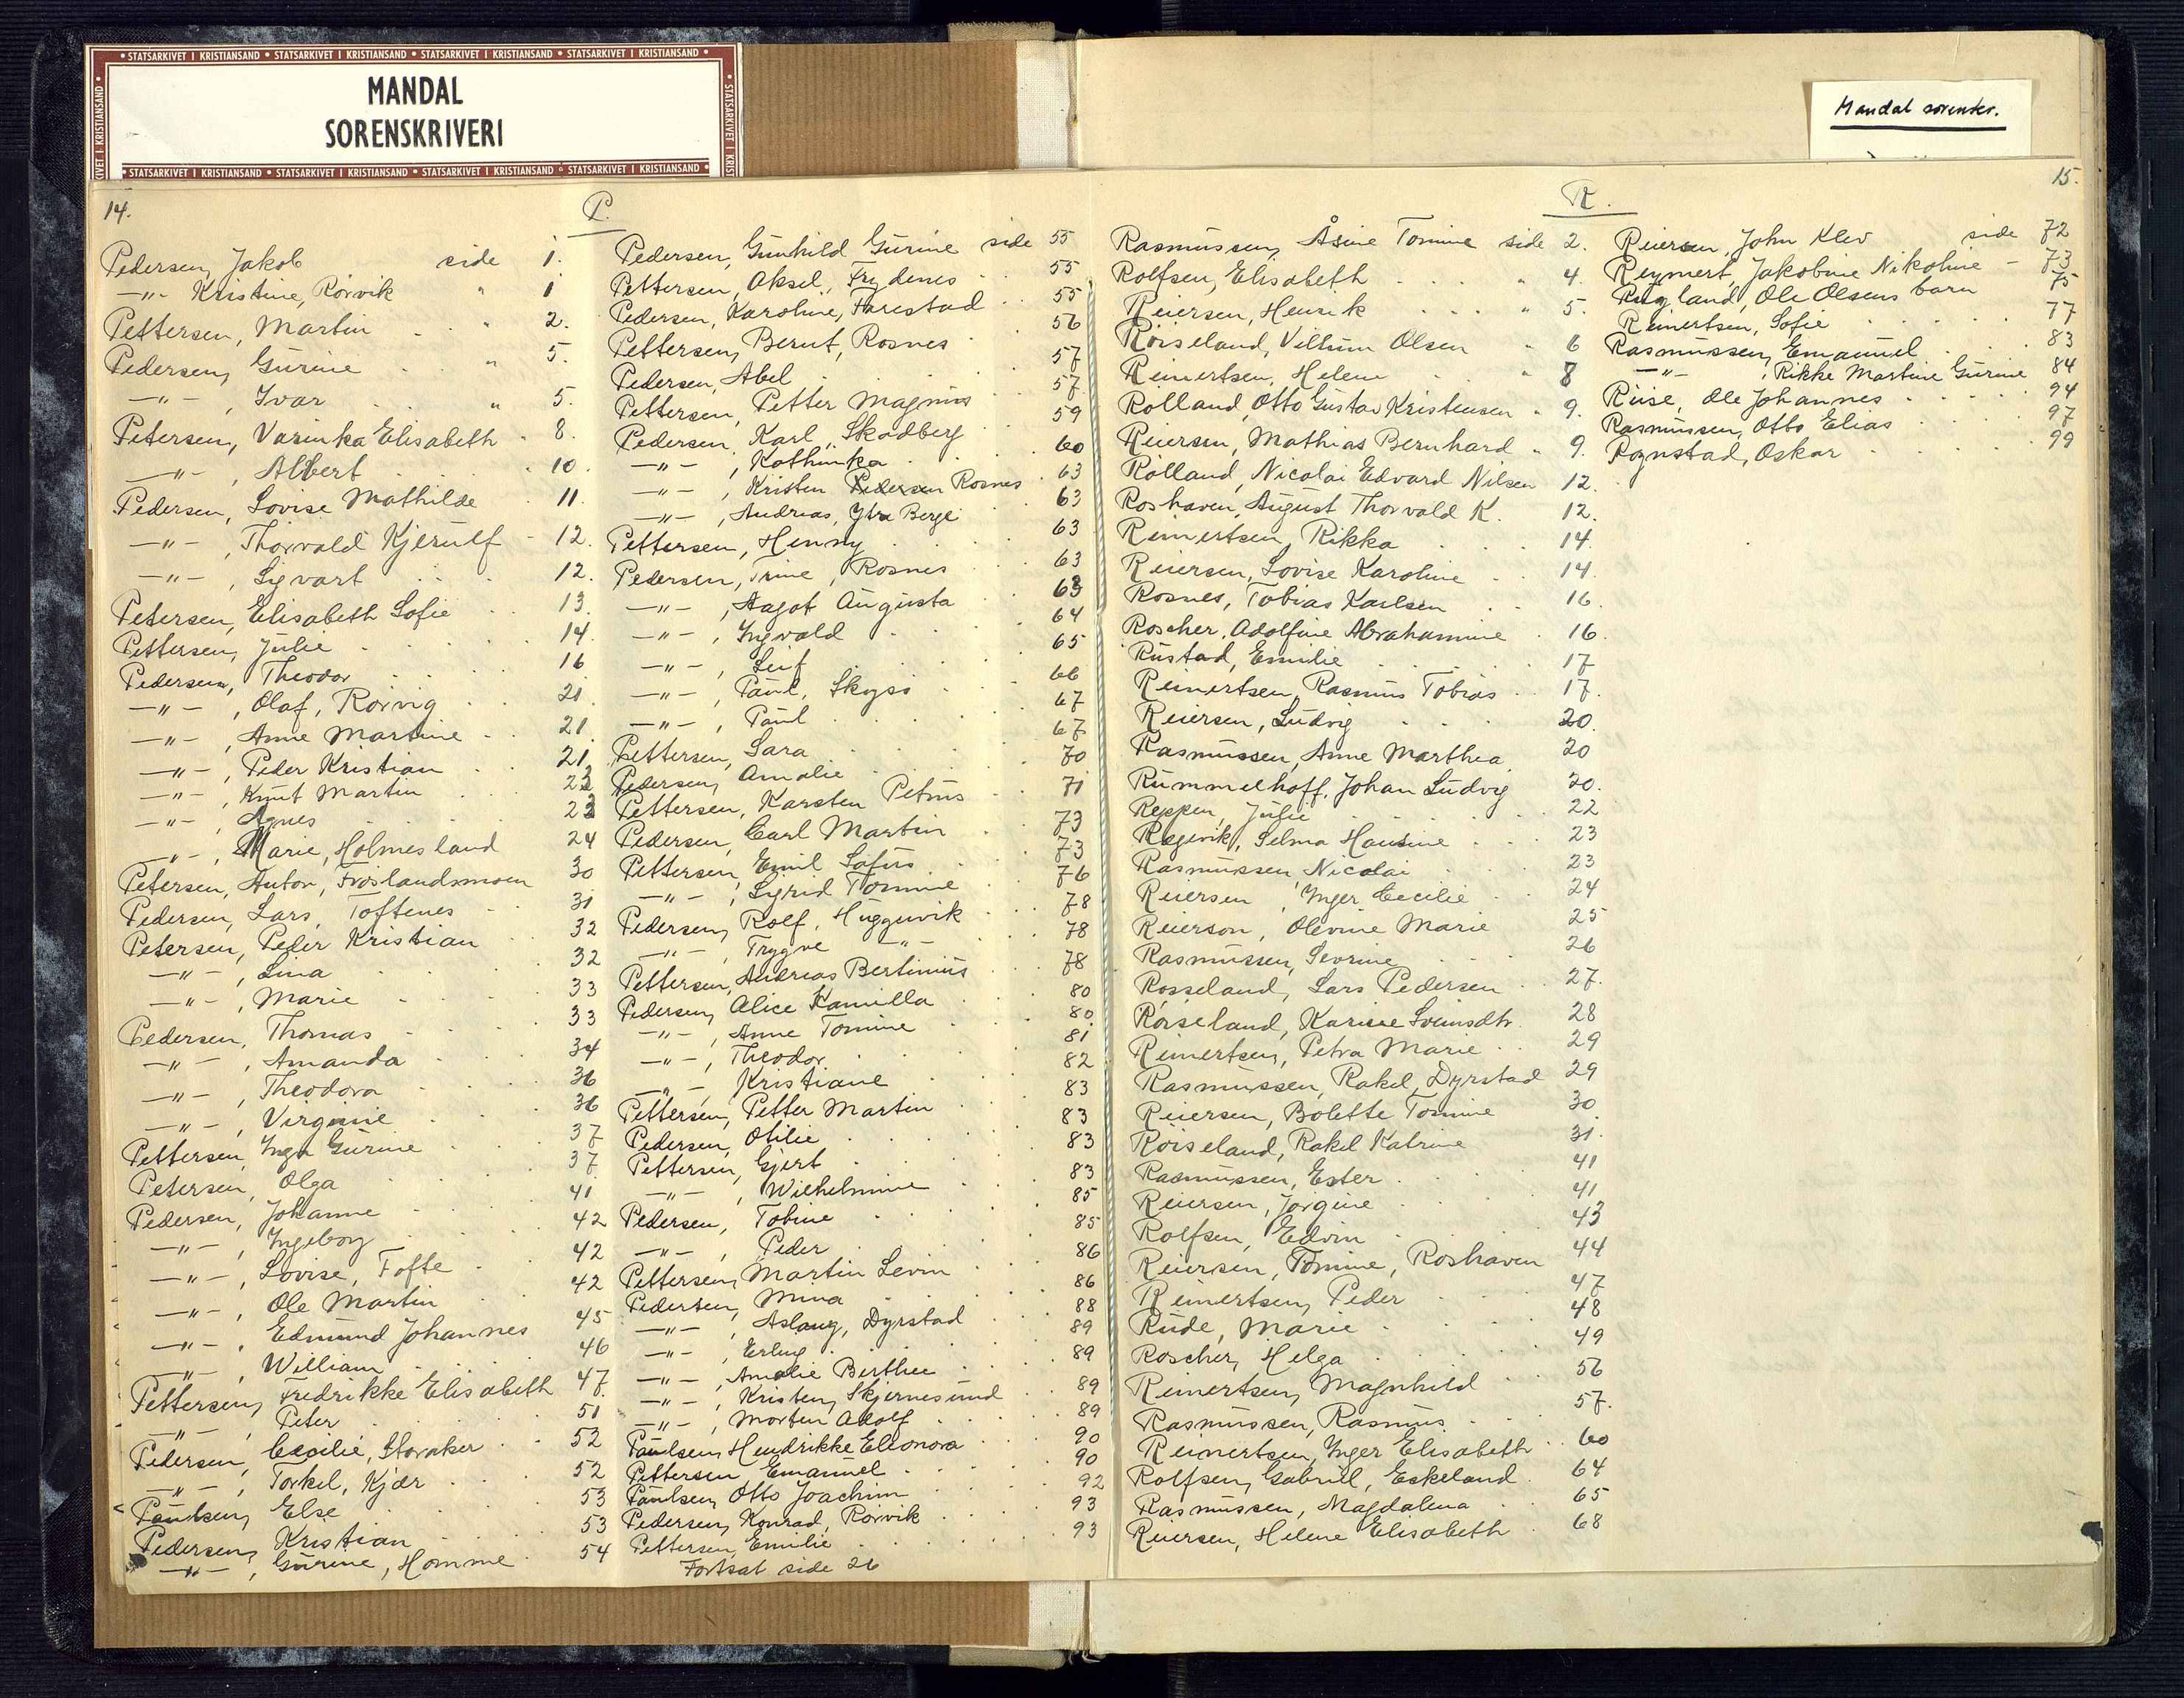 STATSARKIVET I KRISTIANSAND • STATSARKIVET I KRISTIANSAND • STATSARKIVET I KRISTIANSAND • STATSARKIVET I KRISTIANSAND
MANDAL
SORENSKRIVERI
STATSARKIVET I KRISTIANSAND • STATSARKIVET I KRISTIANSAND • STATSARKIVET I KRISTIANSAND • STATSARKIVET I KRISTIANSAND
Mandal sorenskr.
14.
P.
Pedersen, Jakob side 1.
-"- Kristine, Rørvik " 1
Pettersen, Martin " 2.
Pedersen, Gurine " 5.
-"- , Ivar " 5.
Petersen, Varinka Elisabeth 8.
-"- , Albert 10.
Pedersen, Lovise Mathilde 11.
-"- , Thorvald Kjerulf 12.
-"- , Sigvart 12.
Petersen, Elisabeth Sofie 13
Pettersen, Julie 14.
Pedersen, Theodor 16
-"- , Olaf, Rørvig 21.
-"- , Anne Martine 21.
-"- , Peder Kristian 21
-"- , Knut Martin 23
-"- , Agnes 23
-"- , Marie, Holmesland 24
Petersen, Anton, Frøslandsmoen 30
Pedersen, Lars, Toftenes 31
Petersen, Peder Kristian 32
-"- , Lina 32
-"- , Marie 33
Pedersen, Thomas 33
-"- , Amanda 34
-"- , Theodora 36
-"- , Virginie 36
Pettersen, Inga Gurine 37
Petersen, Olga 37
Pedersen, Johanne 41
-"- , Ingeborg 42
-"- , Lovise, Tofte 42
-"- , Ole Martin 42
-"- , Edmund Johannes 45
-"- , William 46
Pettersen, Fredrikke Elisabeth 47.
-"- , Peter 51
Pedersen, Cecilie, Storaker 52
-"- , Torkel, Kjær 52
Paulsen, Else 53
Pedersen, Kristian 53
-"- , Gurine, Homme 54
Pedersen, Gunhild Gurine side 55
Pettersen, Aksel, Frydenes 55
Pedersen, Karoline, Farestad 55
Pettersen, Bernt, Rosnes 56
Pedersen, Abel 57
Pettersen, Petter Magnus 57
Pedersen, Karl, Skadberg 59
-"- , Kathinka 60
-"- , Kristen Pedersen Rosnes 63
-"- , Andreas, Ytre Berge 63
Pettersen, Henny 63
Pedersen, Trine, Rosnes 63
-"- , Aagot Augusta 63
-"- , Ingvald 64
-"- , Leif 65
-"- , Paul, Skogsø 66
-"- , Paul 67
Pettersen, Sara 67
Pedersen, Amalie 70
Pettersen, Karsten Petrus 71
Pedersen, Carl Martin 73
Pettersen, Emil Safus 73
-"- , Sigrid Tomine 76
Pedersen, Rolf, Hugguvik 78
-"- , Trygve -"- 78
Pettersen, Andreas Bertinius 78
Pedersen, Alice Kamilla 80
-"- , Anne Tomine 80
-"- , Theodor 81
-"- , Kristiane 82
Pettersen, Petter Martin 83
Pedersen, Otilie 83
Pettersen, Gjert 83
-"- , Wilhelmine 83
Pedersen, Tobine 85
-"- , Peder 85
Pettersen, Martin Levin 86
Pedersen, Mina 86
-"- , Aslaug, Dyrstad 88
-"- , Erling 89
-"- , Amalie Berthee 89
-"- , Kristen, Skjernesund 89
-"- , Morten Adolf 89
Paulsen, Hendrikke Eleonora 90
Pettersen, Emanuel 90
Paulsen, Otto Joachim 92
Pedersen, Konrad, Rørvik 93
Pettersen, Emilie 93
Fortsat side 26
15.
R.
Rasmussen, Åsine Tomine side 2.
Rolfsen, Elisabeth " 4.
Reiersen, Henrik " 5.
Røiseland, Villum Olsen " 6
Reinertsen, Helene " 8
Rolland, Otto Gustav Kristensen " 9.
Reiersen, Mathias Bernhard " 9.
Rolland, Nicolai Edvard Nilsen 12.
Roshaven, August Thorvald K. 12.
Reinertsen, Rikka 14.
Reiersen, Lovise Karoline 14.
Rosnes, Tobias Karlsen 16.
Roscher, Adolfine Abrahamine 16.
Rustad, Emilie 17
Reinertsen, Rasmus Tobias 17.
Reiersen, Ludvig 20.
Rasmussen, Anne Marthea 20
Rummelhoff, Johan Ludvig 20.
Reppen, Julie 22
Regevik, Selma Hansine 23
Rasmussen, Nicolai 23
Reiersen, Inger Cecilie 24
Reierson, Olevine Marie 25
Rasmussen, Sevrine 26
Rosseland, Lars Pedersen 27.
Røiseland, Karine Sveinsdtr. 28
Reinertsen, Petra Marie 29
Rasmussen, Rakel, Dyrstad 29
Reiersen, Bolette Tomine 30
Røiseland, Rakel Katrine 31.
Rasmussen, Ester 41
Reiersen, Jørgine 41
Rolfsen, Edvin 43
Reiersen, Tomine, Roshaven 44
Reinertsen, Peder 47
Rude, Marie 48
Roscher, Helga 49
Reinertsen, Magnhild 56
Rasmussen, Rasmus 57.
Reinertsen, Inger Elisabeth 60
Rolfsen, Gabriel, Eskeland 64
Rasmussen, Magdalena 65
Reiersen, Helene Elisabeth 68
Reiersen, John Klev side 72
Reymert, Jakobine Nikoline - 73
Rugland, Ole Olsens barn 75
Reinertsen, Sofie 77
Rasmussen, Emanuel 83
-"- , Rikke Martine Gurine 84
Riise, Ole Johannes 94
Rasmussen, Otto Elias 97
Rognstad, Oskar 99